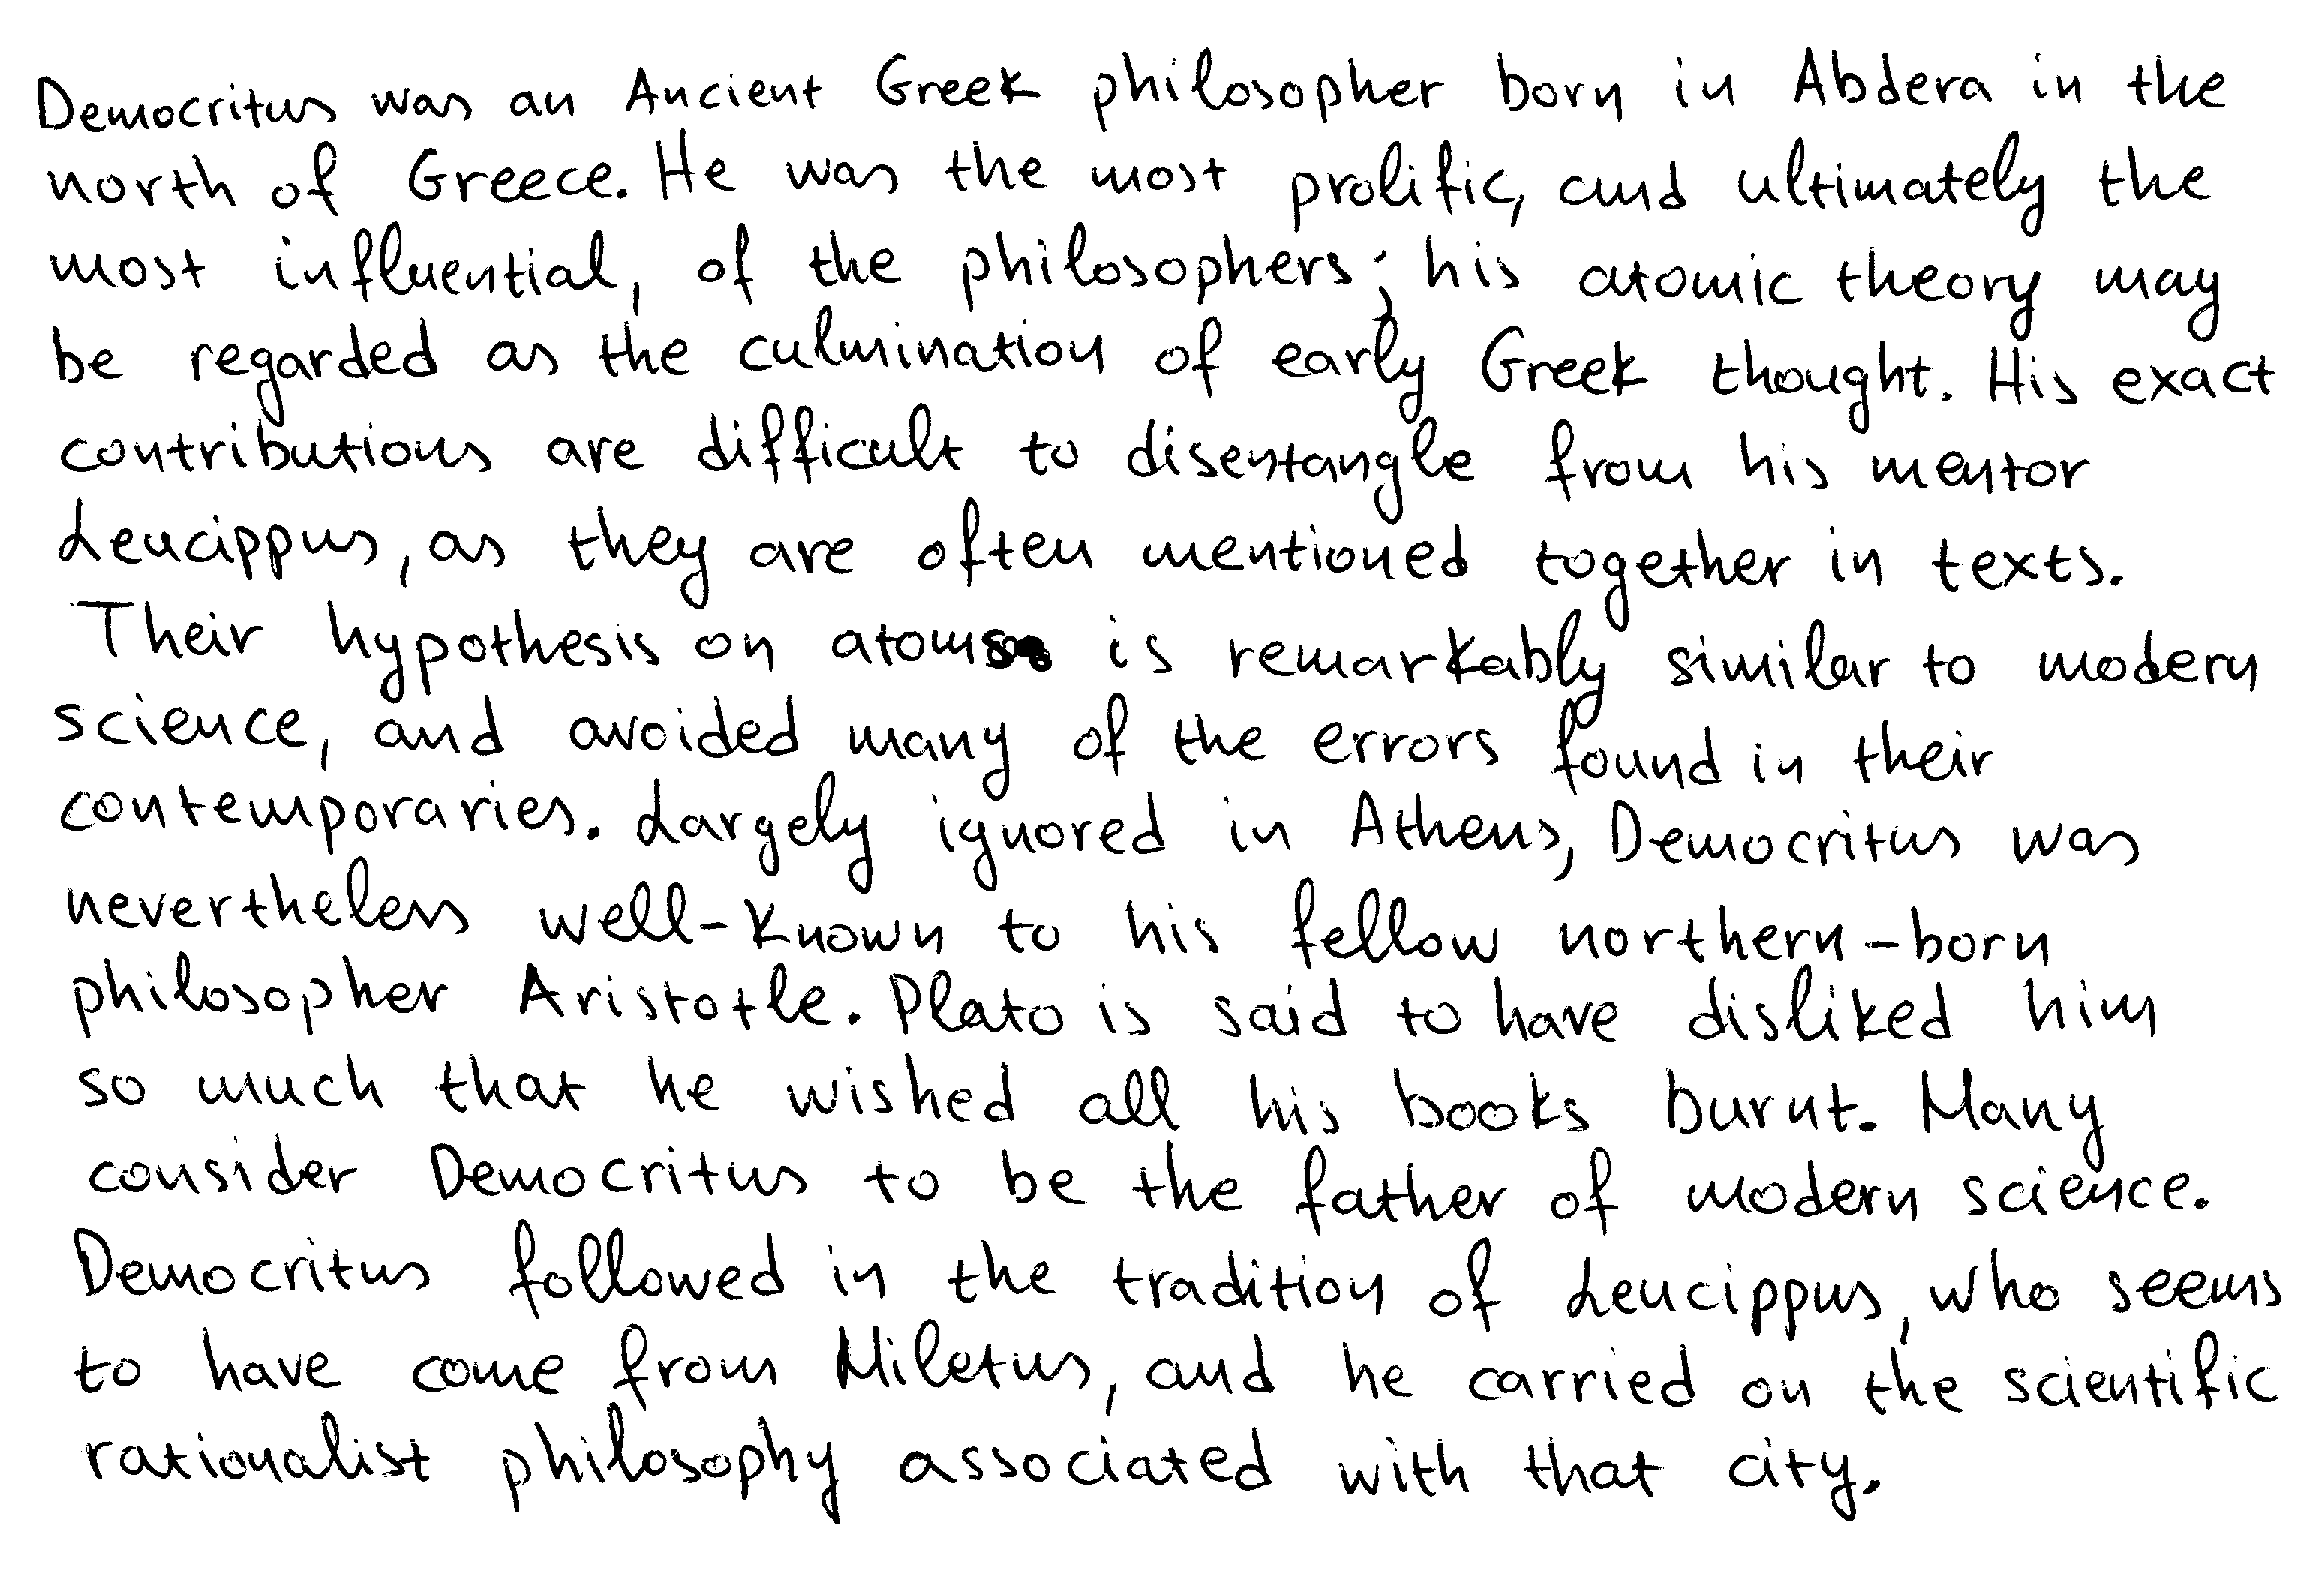 Democritus was an Ancient Greek philosopher born in Abdera in the
north of Greece. He was the most prolific, and ultimately the
most influential, of the philosophers; his atomic theory may
be regarded as the culmination of early Greek thought. His exact
contributions are difficult to disentangle from his mentor
Leucippus, as they are often mentioned together in texts.
Their hypothesis on atoms is remarkably similar to modern
science, and avoided many of the errors found in their
contemporaries. Largely ignored in Athens, Democritus was
nevertheless well-known to his fellow northern-born
philosopher Aristotle. Plato is said to have disliked him
so much that he wished all his books burnt. Many
consider Democritus to be the father of modern science.
Democritus followed in the tradition of Leucippus, who seems
to have come from Miletus, and he carried on the scientific
rationalist philosophy associated with that city.